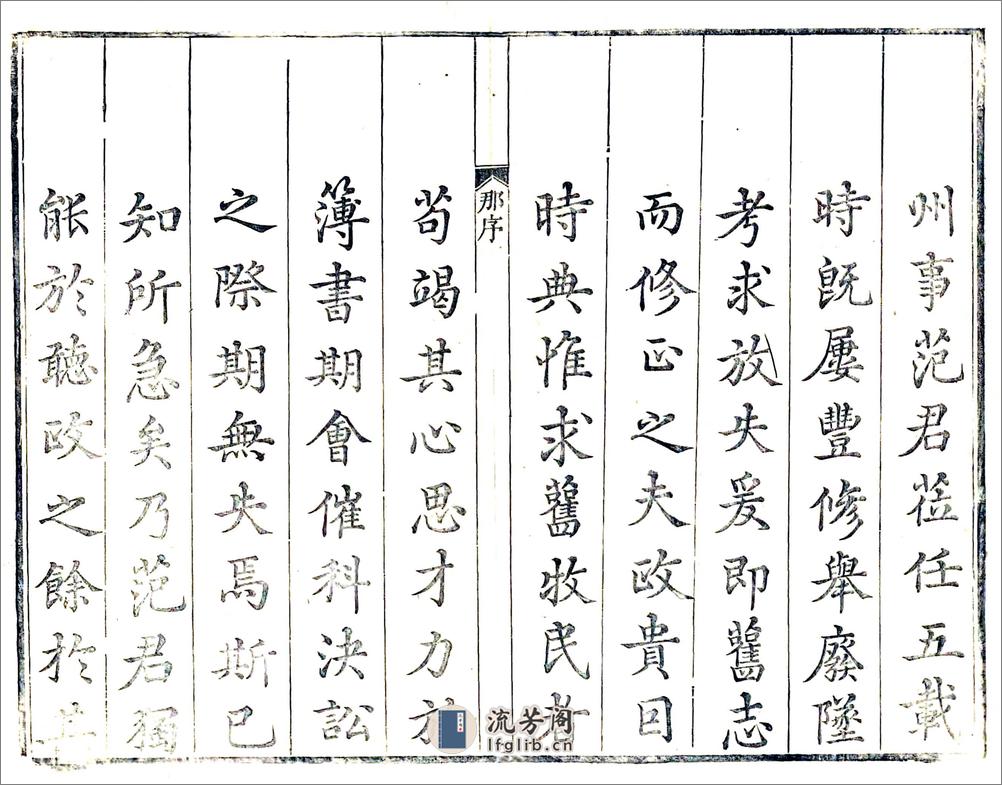 州事范君莅任五載
時既屢豐修舉廢墜
考求放失爰即舊志
而修正之夫政貴因
時典惟求舊牧民者
那序
苟竭其心思才力於
簿書期會催科決訟
之際期無失焉斯已
知所急矣乃范君獨
能於聽政之餘於其
流芳阁
lfglib.cn